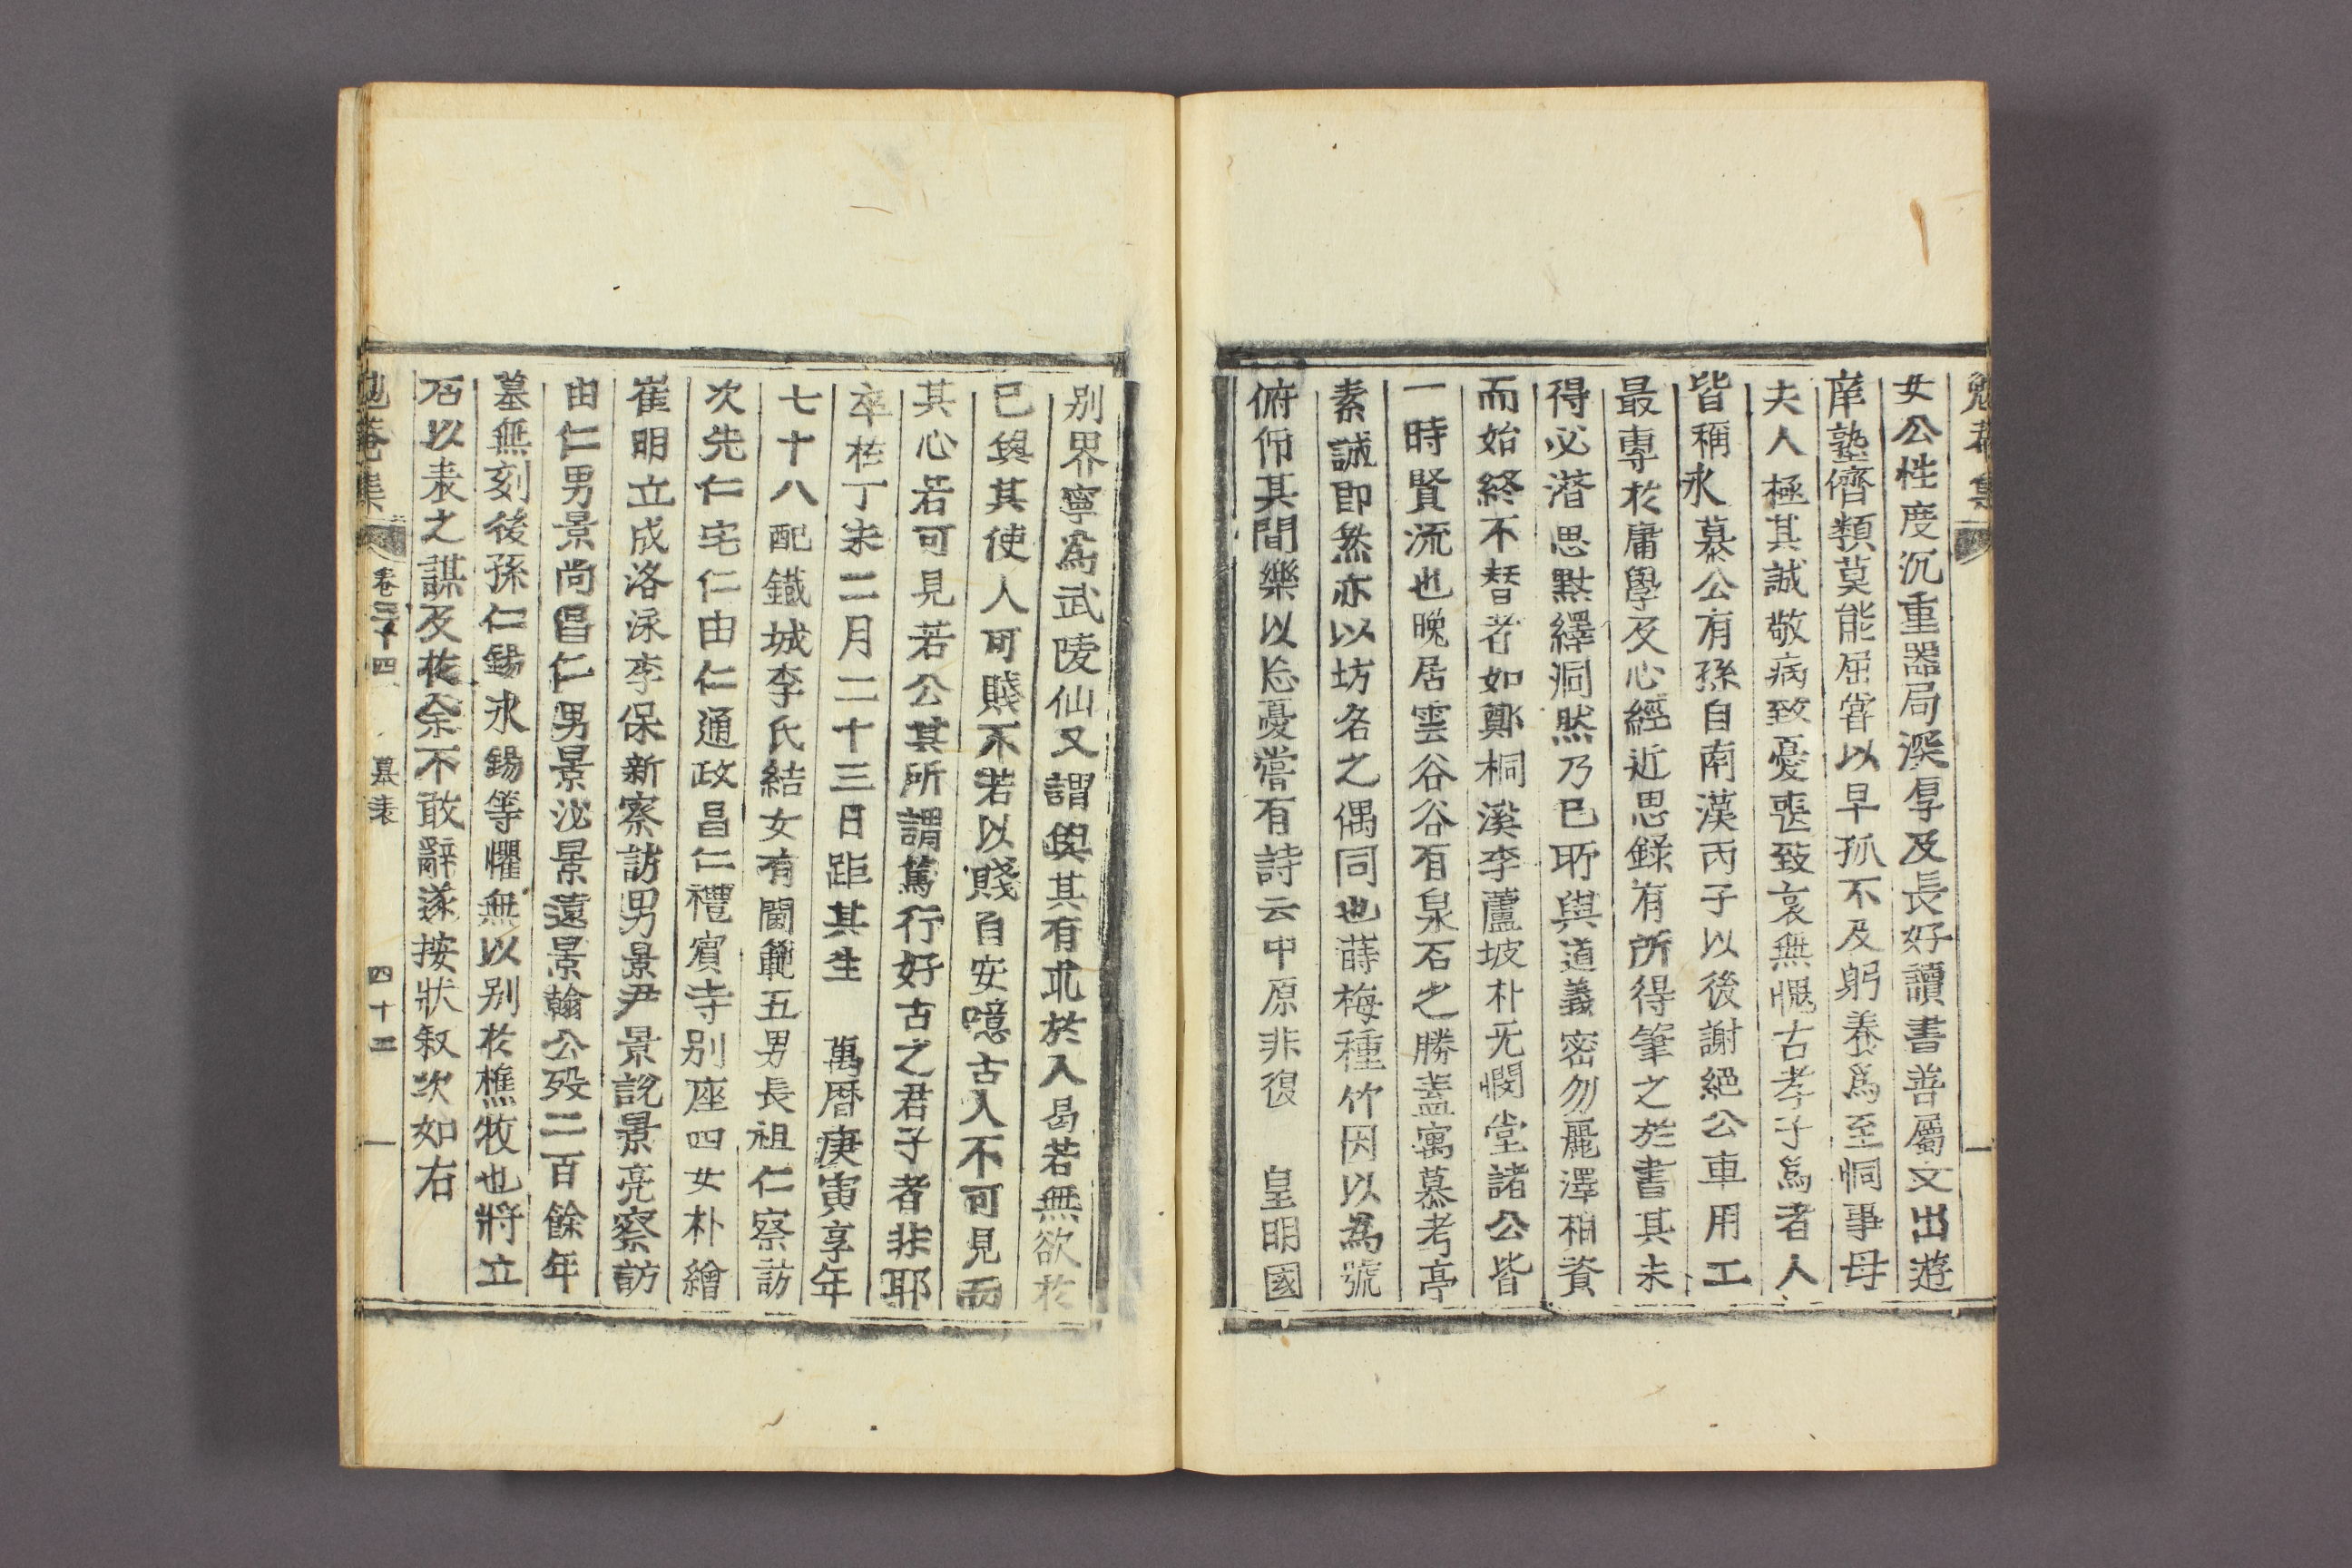 女公性度沉重器局深厚及長好讀書善屬文出遊
庠塾儕類莫能屈嘗以早孤不及躬養爲至恫事母
夫人極其誠敬病致憂喪致哀無愧古孝子爲者人
皆稱永慕公有孫自南漢丙子以後謝絕公車用工
最專於庸學及心經近思錄有所得筆之於書其未
得必潛思黙繹洞然乃已所與道義密勿麗澤相資
而始終不替者如鄭桐溪李蘆坡朴无悶堂諸公皆
一時賢流也晚居雲谷谷有泉石之勝盖寓慕考亭
素誠卽然亦以坊名之偶同也蒔梅種竹因以爲號
俯仰其間樂以忘憂嘗有詩云中原非復 皇明國
別界寧爲武陵仙又謂與其有求於人曷若無欲於
已與其使人可賤不若以賤自安噫古人不可見而
其心若可見若公其所謂篤行好古之君子者非耶
卒在丁未二月二十三日距其生 萬曆庚寅享年
七十八配鐵城李氏結女有閫範五男長祖仁察訪
次先仁宅仁由仁通政昌仁禮賓寺別座四女朴繪
崔明立成洛泳李保新察訪男景尹景說景亮察訪
由仁男景尚昌仁男景泌景遠景翰公歿二百餘年
墓無刻後孫仁錫永錫等懼無以別於樵牧也將立
石以表之謀及於余不敢辭遂按狀叙次如右
卷 十四 墓表 四十三